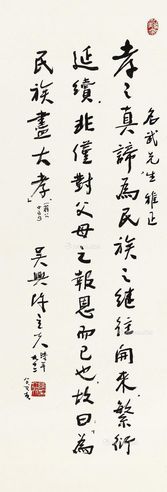 君武先生雅正
孝之真諦為民族之繼往開來繁衍
延續非僅對父母之報恩而已也故曰為
民族盡大孝
吳興
時年九